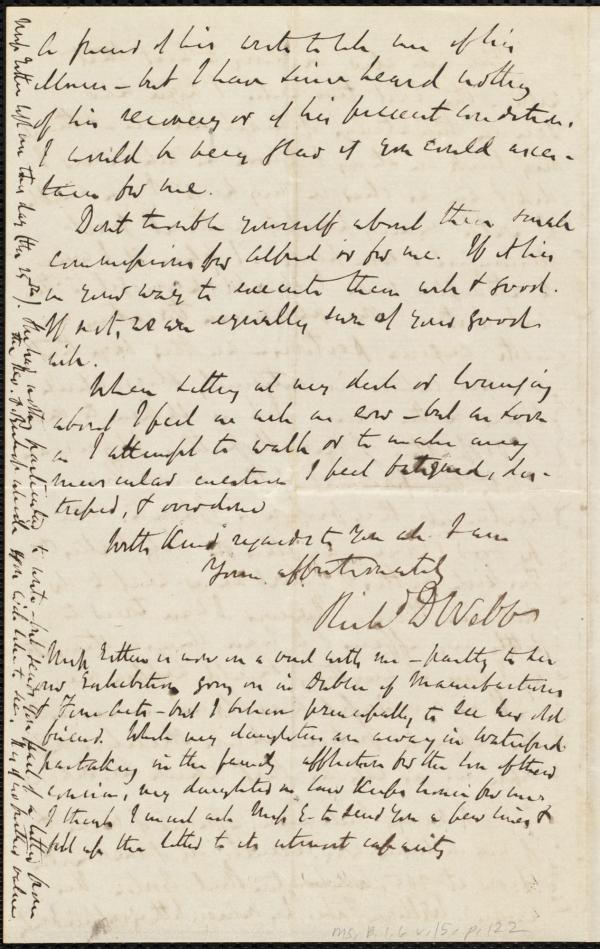 A friend of his wrote to tell me of his
illness – but I have since heard nothing
of his recovery or of his present condition.
I would be very glad if you could ascer-
tain for me.
Dont trouble yourself about these small
commissions for Alfred or for me. If it lies
in your way to execute them well & good.
If not, we are equally sure of your good
will.
When sitting at my desk or lounging
about I feel as well as ever – but as soon
as I attempt to walk or to make any
muscular exertion I feel fatigued, dis-
tressed, & overdone
With kind regards to you all I am
Yours affectionately
Richd D Webb
Miss Estlin is now on a visit with me – partly to see
our Exhibition going on in Dublin of Manufactures
& Fine Arts – but I believe principally to see her old
friend. While my daughters are away in Waterford
partaking in the family affliction for the loss of their
cousin, my daughter in law keeps house for me.
I think I must ask Miss E. to send you a few lines &
fill up the letter to its utmost capacity
Miss Estlin left me this day (the 25th). She had nothing particular to write – but sends you part of a letter from
the which you will like to see. It is of no further value
Ms. B.1.6 v.15, p.122